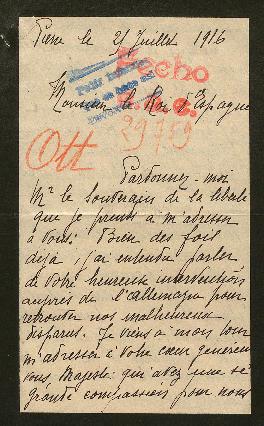 Pierre le 21 Juillet 1916
Hecho
Monsieur le Roi d'Espagne
29759
Ott
Pardonnez-moi
Mr le Souverain de la liberté
que je prends à m'adresser
à Vous. Bien des fois
déjà, j'ai entendu parler
de Votre heureuse intervention
auprès de l'allemagne pour
retrouver nos malheureux
disparus. Je viens à mon tour
m'adresser à Votre cœur généreux
vous Majesté qui avez une si
grande compassion pour nous